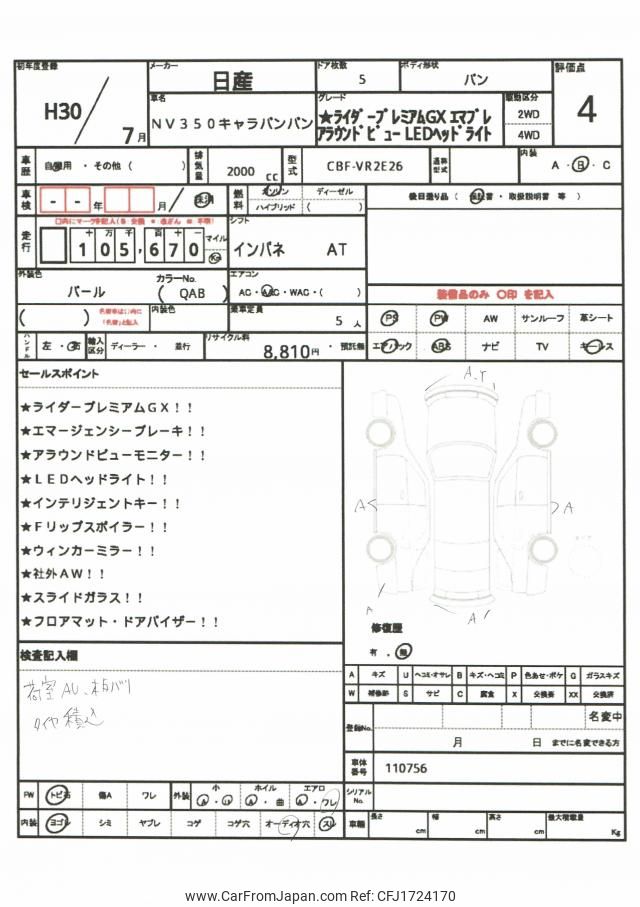 初年度登録
メーカー
ドア枚数
ボディ形状
評価点
H30
7 月
日産
5
バン
4
車名
グレード
駆動区分
NV350キャラバンバン
★ライダープレミアムGX エマブレ
アラウンドビュー LEDヘッドライト
2WD
4WD
車歴
自家用 ・ その他 ( )
排気量
2000 cc
型式
CBF-VR2E26
内装
A ・ B ・ C
車検
- - 年 月
燃料
ガソリン ディーゼル
ハイブリッド ( )
後日送り品 ( 保証書 ・ 取扱説明書 等 )
走行
十 万 千 百 十
105,670
マイル
Km
シフト
インパネ AT
外装色
パール
カラーNo.
( QAB )
エアコン
AC・AAC・WAC・( )
装備品のみ 〇印 を記入
( )
内装色
乗車定員
5 人
PS PW AW サンルーフ 革シート
ハンドル
左 ・ 右
輸入区分
ディーラー ・ 並行
リサイクル料
8,810円 ・ 預託無
エアバック ABS ナビ TV キーレス
セールスポイント
★ライダープレミアムGX！！
★エマージェンシーブレーキ！！
★アラウンドビューモニター！！
★LEDヘッドライト！！
★インテリジェントキー！！
★Fリップスポイラー！！
★ウィンカーミラー！！
★社外AW！！
★スライドガラス！！
★フロアマット・ドアバイザー！！
A
A
A
A
修復歴
有 ． 無
検査記入欄
荷室AU、木白バリ
タイヤ積込
A キズ U ヘコミ・オサレ B キズ・ヘコミ P 色あせ・ボケ G ガラスキズ
W 補修跡 S サビ C 腐食 X 交換要 XX 交換済
登録No.
名変中
月 日 までに名変できる方
車体番号
110756
FW トビ石 傷A ワレ 外装 小 A ・ U ホイル A ・ 曲 エアロ A ・ ワレ
シリアルNo.
内装 ヨゴレ シミ ヤブレ コゲ コゲ穴 オーディオ穴 スレ
車輌 長さ cm 幅 cm 高さ cm 最大積載量 Kg
www.CarFromJapan.com Ref: CFJ1724170